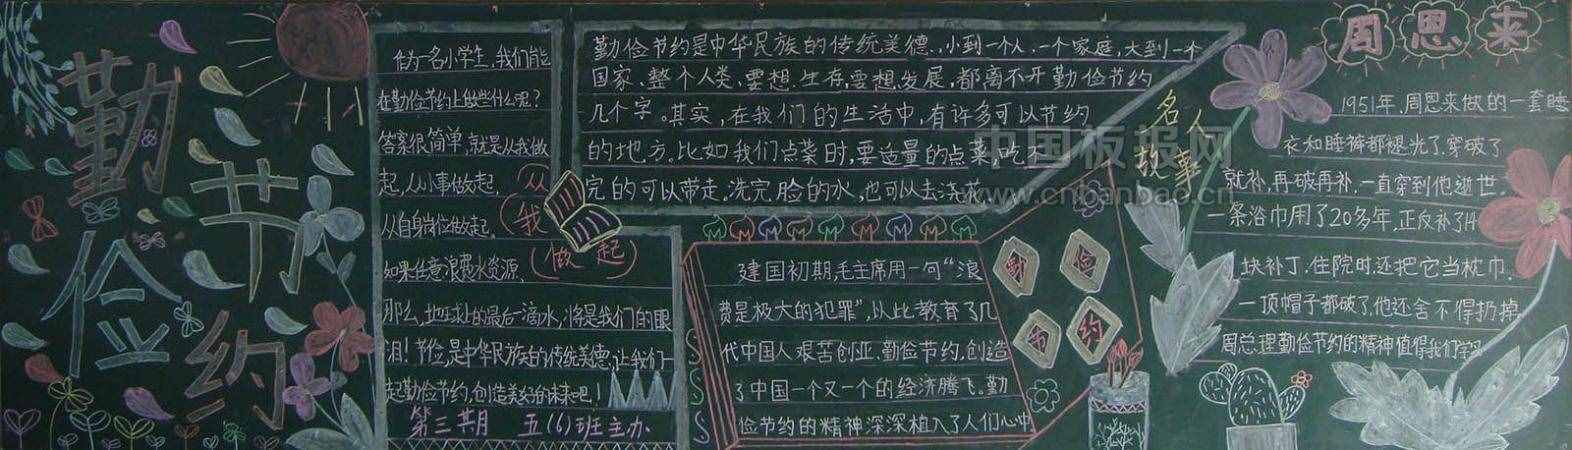 勤俭节约
作为一名小学生,我们能
在勤俭节约上做些什么呢?
答案很简单,就是从我做
起,从小事做起,
从自身岗位做起。
如果任意浪费水资源,
那么,地球上的最后一滴水,将是我们的眼
泪!节俭,是中华民族的传统美德,让我们一
起勤俭节约,创造美好的未来吧!
第三期 五(6)班主办
从
我
做起
勤俭节约是中华民族的传统美德,小到一个人、一个家庭,大到一个
国家、整个人类、要想生存,要想发展,都离不开勤俭节约
几个字。其实,在我们的生活中,有许多可以节约
的地方。比如我们点菜时,要适量的点菜,吃不
完的可以带走。洗完脸的水,也可以去浇花。
建国初期,毛主席用一句“浪
费是极大的犯罪”,以此教育了几
代中国人艰苦创业、勤俭节约,创造
了中国一个又一个的经济腾飞。勤
俭节约的精神深深植入了人们心中
勤俭
节约
名人
故事
周恩来
1951年,周恩来做的一套睡
衣和睡裤都褪光了,穿破了
就补,再破再补,一直穿到他逝世。
一条浴巾用了20多年,正反补了14
块补丁。住院时,还把它当枕巾。
一顶帽子都破了,他还舍不得扔掉
周总理勤俭节约的精神值得我们学习
中国板报网
www.cnbanbao.cn